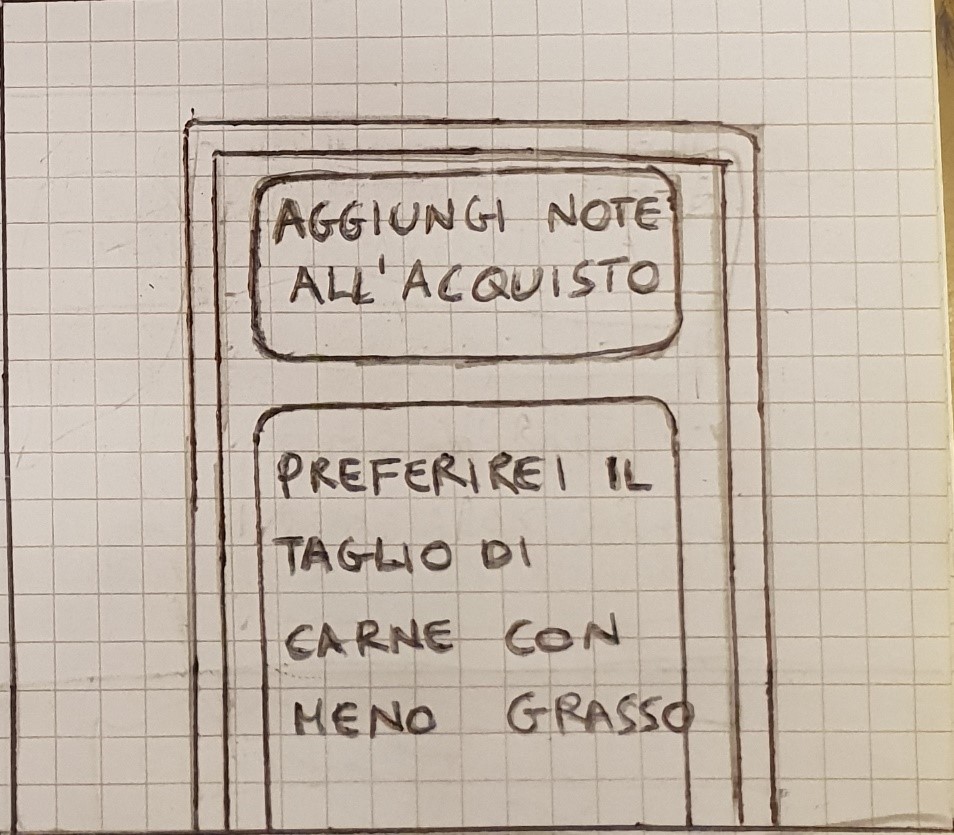 AGGIUNGI NOTE
ALL'ACQUISTO
PREFERIREI IL
TAGLIO DI
CARNE CON
MENO GRASSO